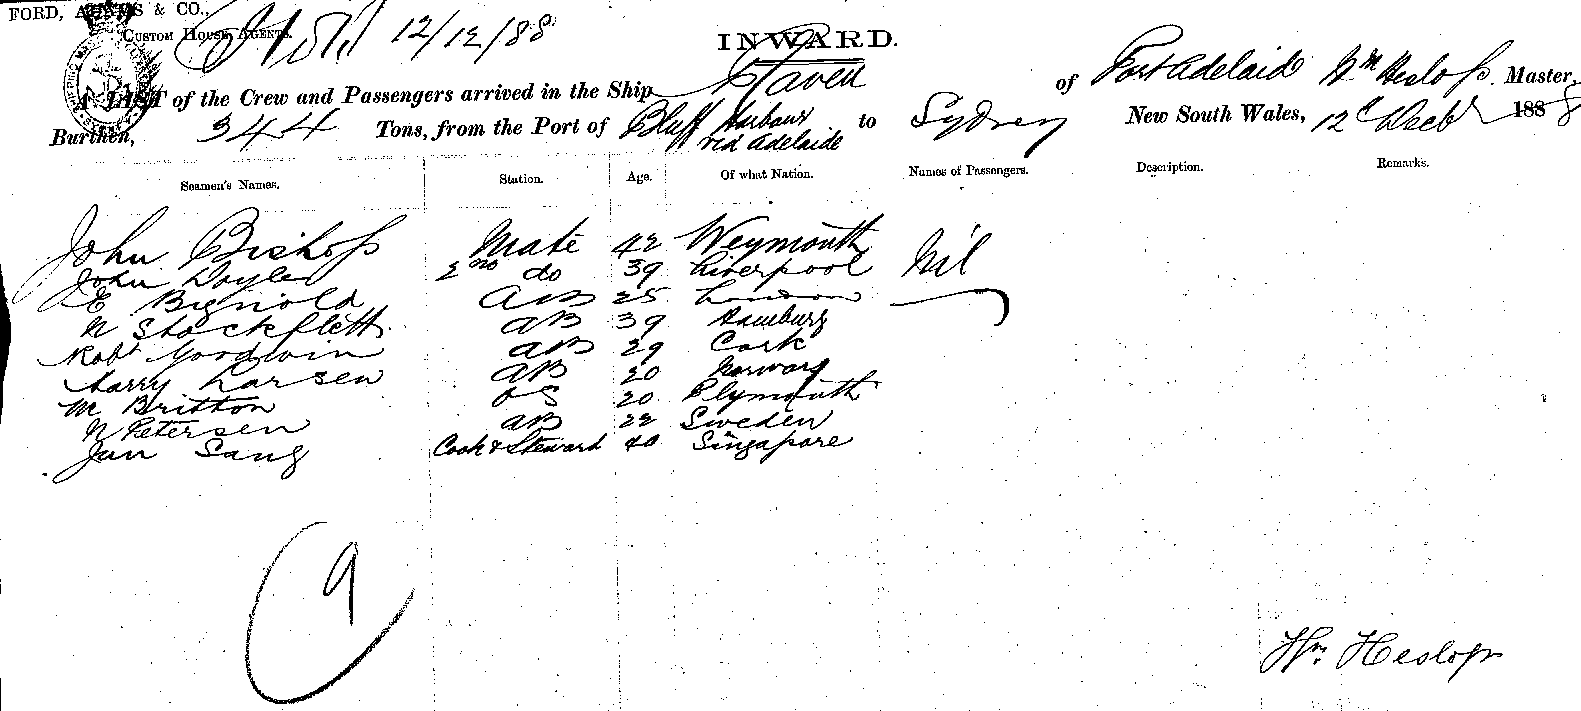 FORD, ADAMS & CO.,
CUSTOM HOUSE AGENTS.
12/12/88
INWARD.
A LIST of the Crew and Passengers arrived in the Ship Raven of Port Adelaide Wm Heslop Master,
Burthen, 344 Tons, from the Port of Bluff Harbour via Adelaide to Sydney New South Wales, 12 Decbr 1888
Seamen's Names. Station. Age. Of what Nation. Names of Passengers. Description. Remarks.
John Bishop Mate 42 Weymouth Nil
John Doyle 2nd do 39 Liverpool
E Bignold AB 25 London
N Stockflett AB 39 Hamburg
Robt Goodwin AB 29 Cork
Harry Larsen AB 20 Norway
M Britton OS 20 Plymouth
N Petersen AB 22 Sweden
Jan Sang Cook & Steward 40 Singapore
9
Wm Heslop